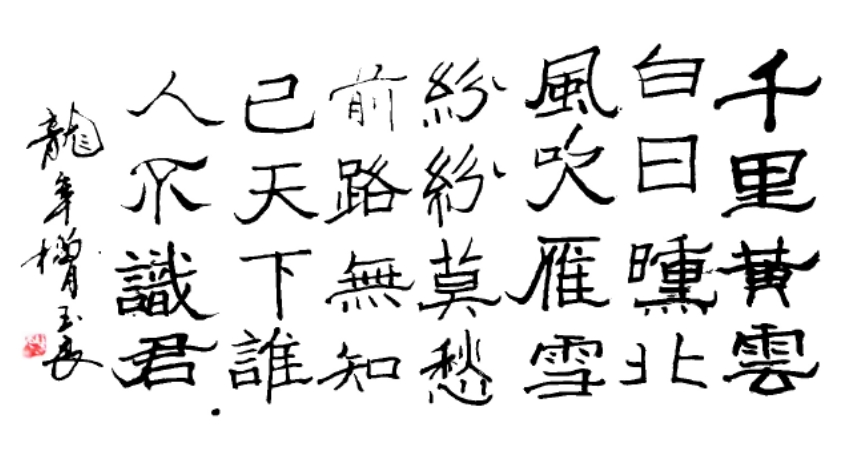 千里黄雲
白日曛北
風吹雁雪
紛紛莫愁
前路無知
已天下誰
人不識君
龍年月玉良